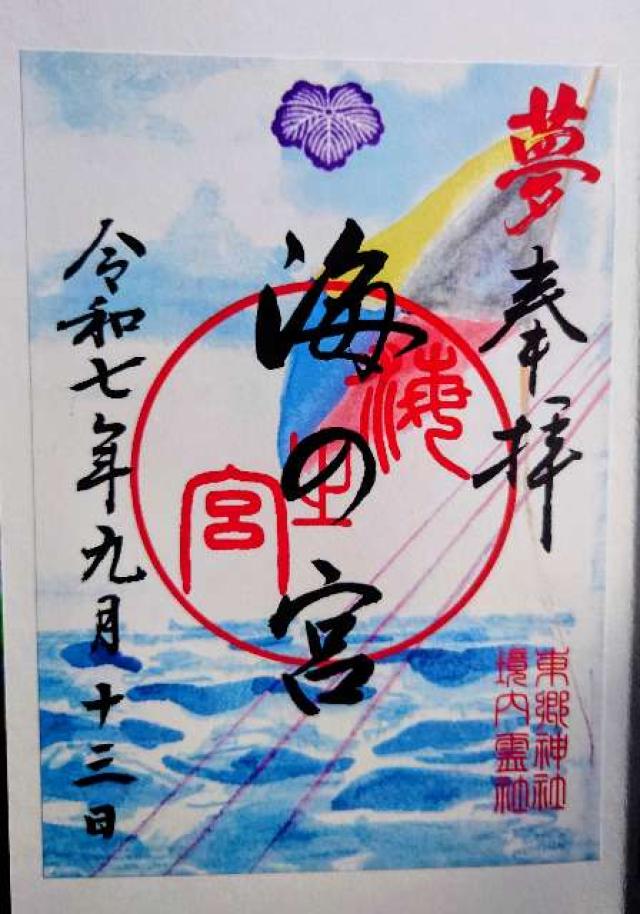 夢
奉拝
東郷神社
境内霊社
海の宮
海
宮
令和七年九月十三日